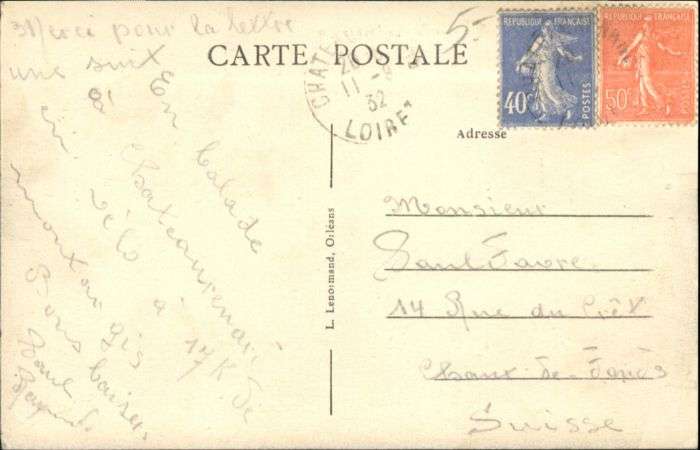 Merci pour la lettre
une suit
En balade
à Chateaurenard
en vélo à 17 K. de
montargis
Bons baisers
Paul
CARTE POSTALE
CHATE
11
32
LOIRET
RÉPUBLIQUE FRANÇAISE
40c
POSTES
RÉPUBLIQUE FRANÇAISE
50c
POSTES
Adresse
L. Lenormand, Orléans
Monsieur
Paul Favre
14 Rue du Crêt
Chaux-de-Fonds
Suisse